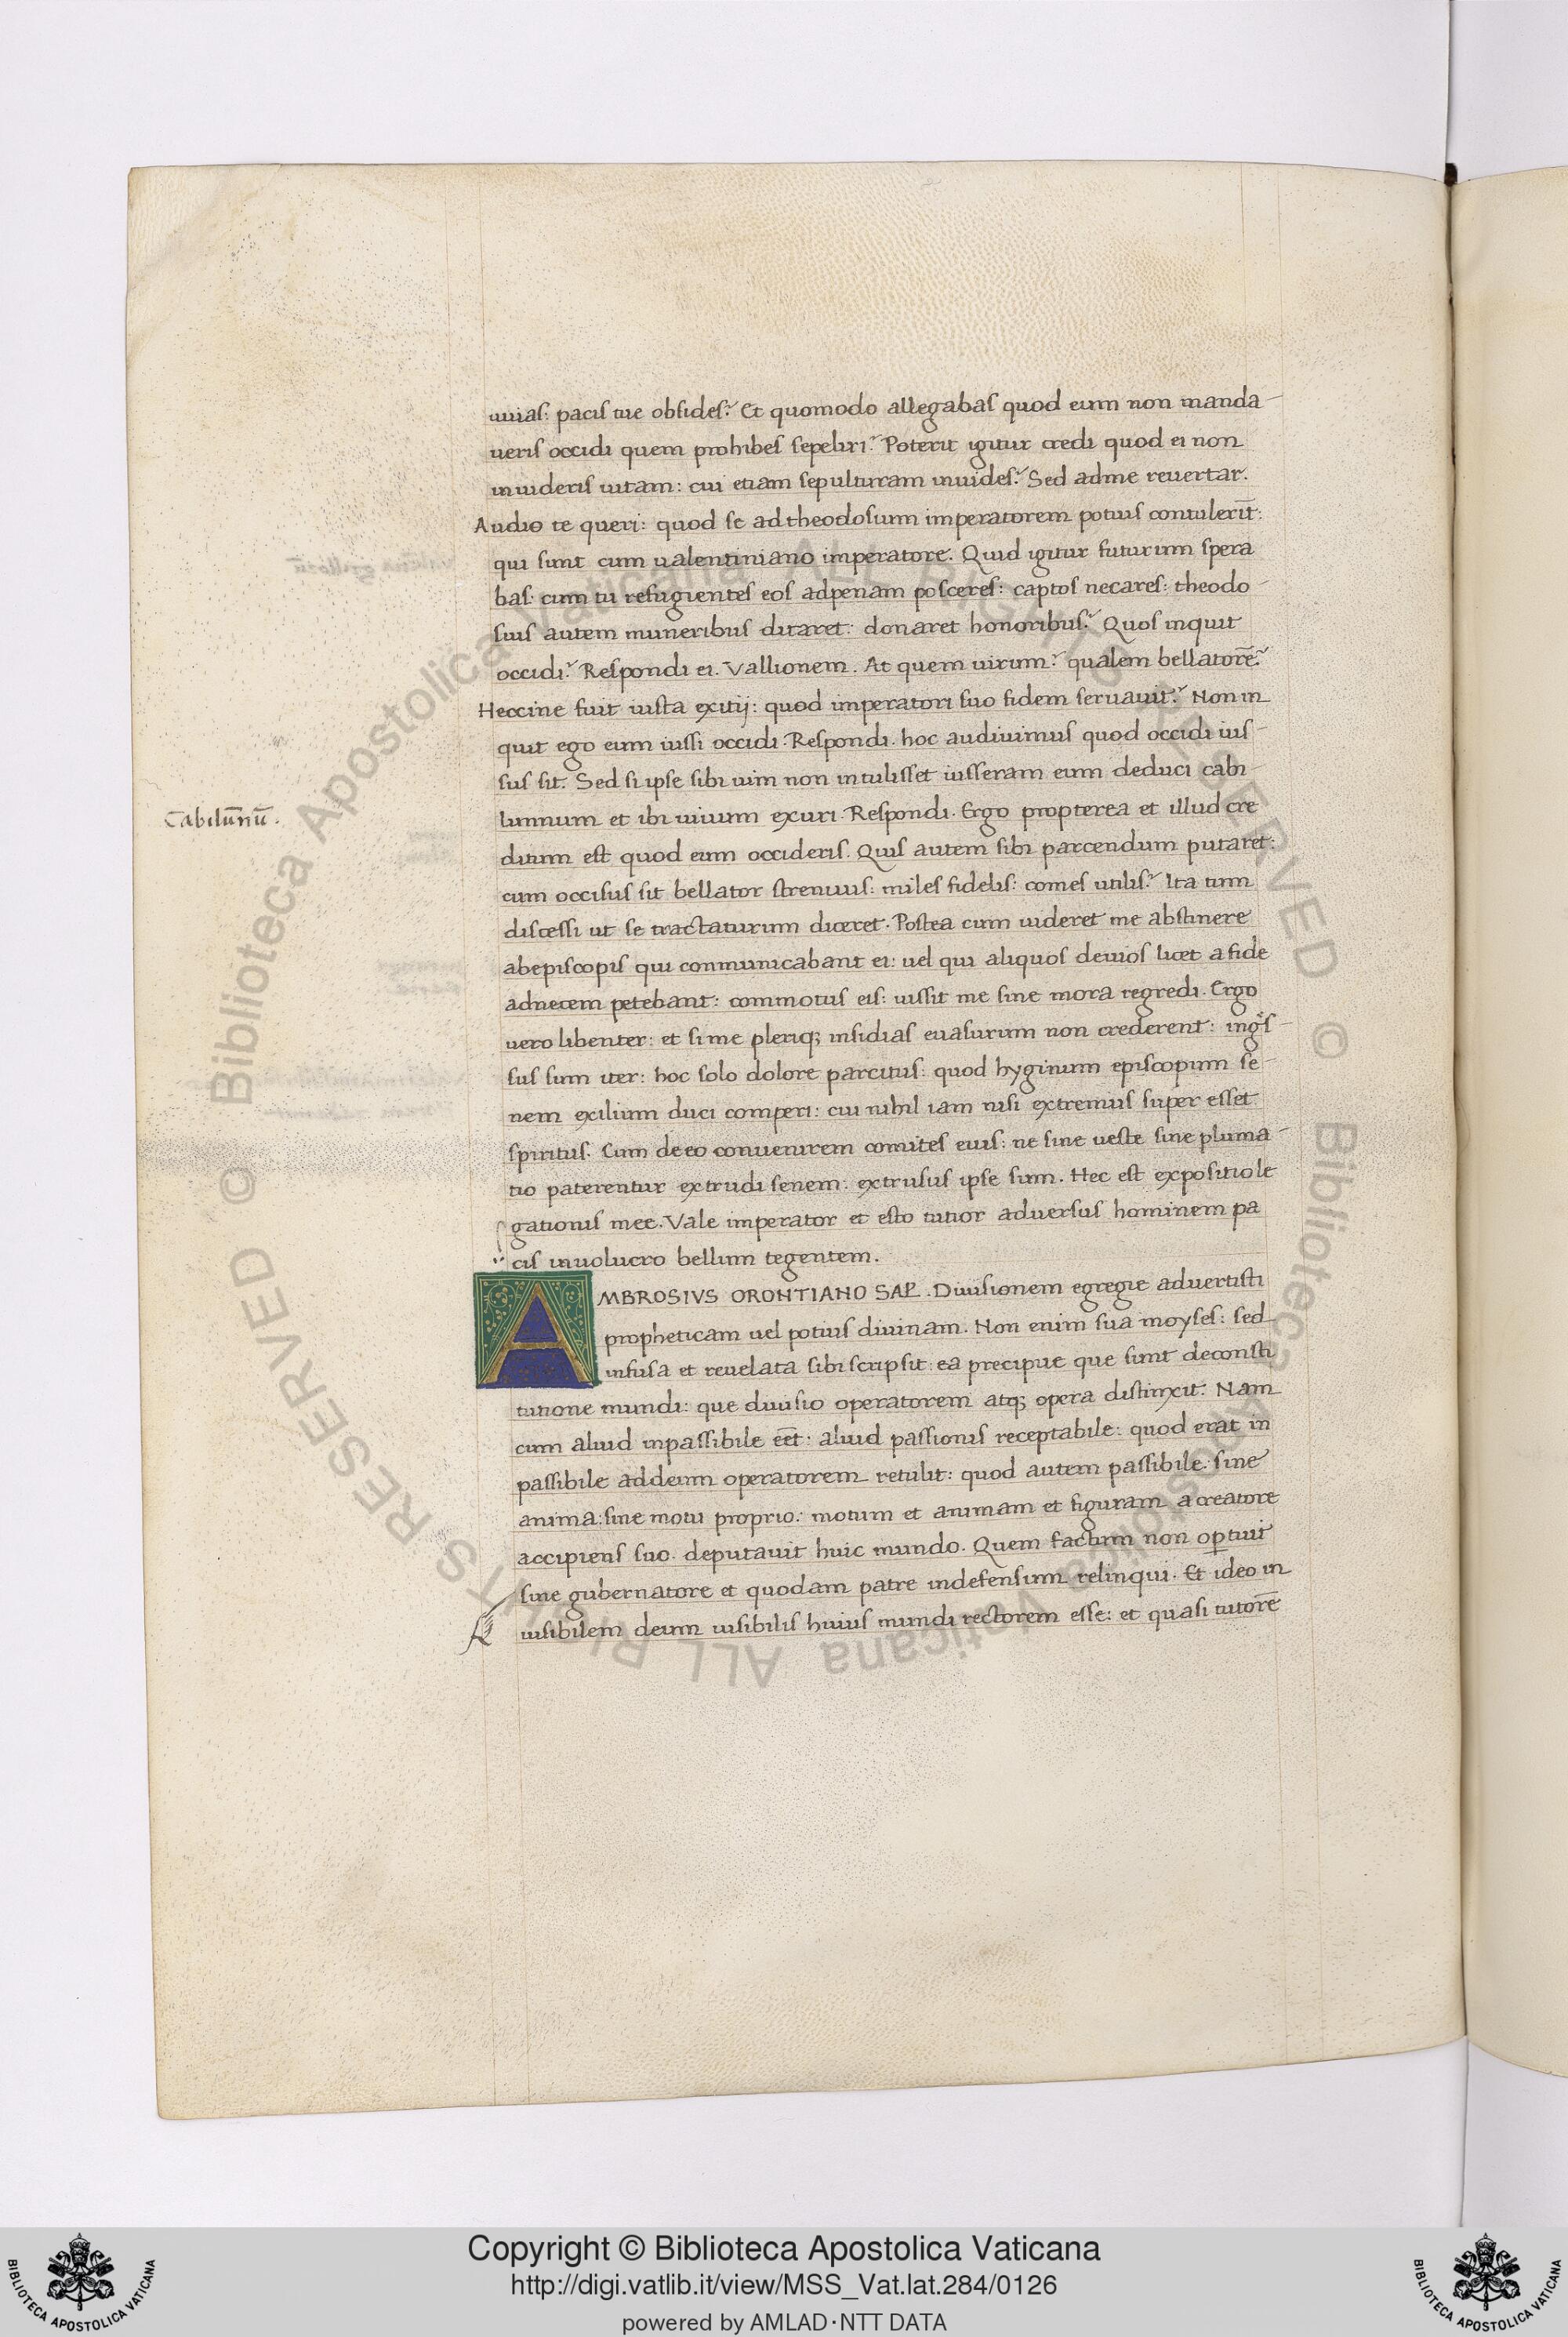 uuias: pacis tue obsides? Et quomodo allegabas quod eum non manda-
ueris occidi quem prohibes sepeliri? Poterit igitur credi quod ei non
inuideris uitam: cui etiam sepulturam inuides? Sed adme reuertar.
Audio te queri: quod se ad theodosium imperatorem potius contulerīt:
qui sunt cum ualentiniano imperatore. Quid igitur futurum spera
bas: cum tu refugientes eos adpenam posceres: captos necares: theodo-
sius autem muneribus ditaret: donaret honoribus? Quos inquit
occidi? Respondi ei. Vallionem. At quem uirum? qualem bellatorē?
Heccine fuit iusta exitij: quod imperatori suo fidem seruauit? Non in
quit ego eum iussi occidi. Respondi. hoc audiuimus quod occidi ius-
sus sit. Sed si ipse sibi uim non intulisset iusseram eum deduci cabi-
Cabilūnū.
lunnum et ibi uiuum exuri. Respondi. Ergo propterea et illud cre
ditum est quod eum occideris. Quis autem sibi parcendum putaret:
cum occisus sit bellator strenuus: miles fidelis: comes utilis? Ita tum
discessi ut se tractaturum diceret. Postea cum uideret me abstinere
abepiscopis qui conmunicabant ei: uel qui aliquos deuios licet a fide
adnecem petebant: commotus eis: iussit me sine mora regredi. Ergo
uero libenter: et si me pleriq; insidias euasurum non crederent: ings-
sus sum iter: hoc solo dolore parcitus: quod hyginum episcopum se-
nem exilium duci comperi: cui nihil iam nisi extremus super esset
spiritus. Cum de eo conuenirem comites eius: ne sine ueste sine pluma-
tio paterentur extrudi senem: extrusus ipse sum. Hec est expositio le
gationis mee. Vale imperator et esto tutior aduersus hominem pa
cis inuolucro bellum tegentem.
AMBROSIVS ORONTIANO SAL. Diuisionem egregie aduertisti
propheticam uel potius diuinam. Non enim sua moyses: sed
infusa et reuelata sibi scripsit: ea precipue que sunt deconsti
tutione mundi: que diuisio operatorem atq; opera distinxit. Nam
cum aliud inpassibile eēt: aliud passionis receptabile: quod erat in
passibile addeum operatorem retulit: quod autem passibile: sine
anima: sine motu proprio: motum et animam et figuram a creatore
accipiens suo. deputauit huic mundo. Quem factum non optuit
sine gubernatore et quodam patre indefensum relinqui. Et ideo in
uisibilem deum uisibilis huius mundi rectorem esse: et quasi tutorē
Copyright © Biblioteca Apostolica Vaticana
http://digi.vatlib.it/view/MSS_Vat.lat.284/0126
powered by AMLAD·NTT DATA